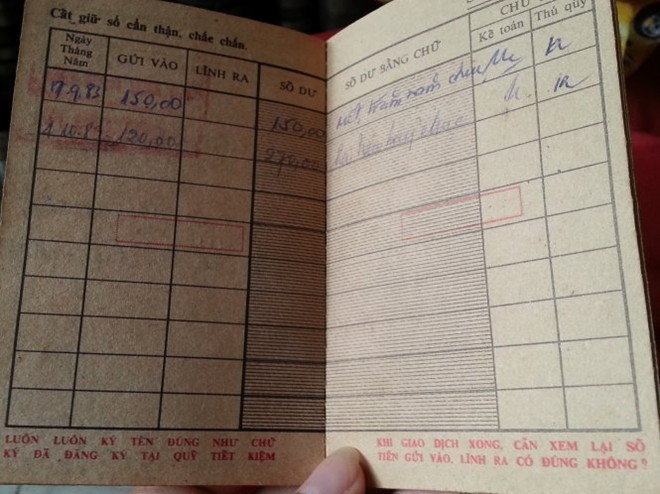 Cất giữ sổ cẩn thận, chắc chắn.
Ngày Tháng Năm GỬI VÀO LĨNH RA SỐ DƯ SỐ DƯ BẰNG CHỮ Kế toán Thủ quỹ
9.83 150,00 150,00 một trăm năm chục
120,00 270,00
LUÔN LUÔN KÝ TÊN ĐÚNG NHƯ CHỮ
KÝ ĐÃ ĐĂNG KÝ TẠI QUỸ TIẾT KIỆM
KHI GIAO DỊCH XONG, CẦN XEM LẠI SỐ
TIỀN GỬI VÀO, LĨNH RA CÓ ĐÚNG KHÔNG?